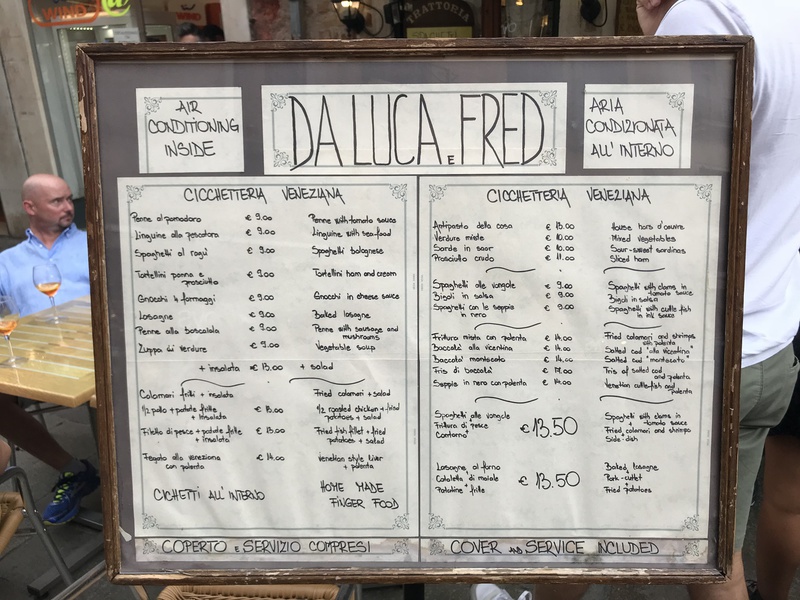 WIND
WIND
TRATTORIA
AIR
CONDITIONING
INSIDE
DA LUCA E FRED
ARIA
CONDIZIONATA
ALL'INTERNO
CICCHETTERIA VENEZIANA
Penne al pomodoro € 9.00 Penne with tomato sauce
Linguine alla pescatora € 9.00 Linguine with sea-food
Spaghetti al ragù € 9.00 Spaghetti bolognese
Tortellini panna e prosciutto € 9.00 Tortellini ham and cream
Gnocchi 4 formaggi € 9.00 Gnocchi in cheese sauce
Lasagne € 9.00 Baked lasagne
Penne alla boscaiola € 9.00 Penne with sausage and mushrooms
Zuppa di verdure € 9.00 Vegetable soup
+ insalata € 13.00 + salad
Calamari fritti + insalata Fried calamari + salad
1/2 pollo + patate fritte + insalata € 13.00 1/2 roasted chicken + fried potatoes + salad
Filetto di pesce + patate fritte + insalata € 13.00 Fried fish fillet + fried potatoes + salad
Fegato alla veneziana con polenta € 14.00 Venetian style liver + polenta
CICHETTI ALL'INTERNO HOME MADE
FINGER FOOD
COPERTO E SERVIZIO COMPRESI
CICCHETTERIA VENEZIANA
Antipasto della casa € 13.00 House hors d'oeuvre
Verdure miste € 10.00 Mixed vegetables
Sarde in saor € 10.00 Sour-sweet sardines
Prosciutto crudo € 11.00 Sliced ham
Spaghetti alle vongole € 9.00 Spaghetti with clams in tomato sauce
Bigoli in salsa € 9.00 Bigoli in salsa
Spaghetti con le seppie in nero € 9.00 Spaghetti with cuttle fish in ink sauce
Frittura mista con polenta € 14.00 Fried calamari and shrimps with polenta
Baccalà alla vicentina € 14.00 Salted cod "alla vicentina"
Baccalà mantecato € 14.00 Salted cod "mantecato"
Tris di baccalà Tris of salted cod and polenta
Seppie in nero con polenta € 14.00 Venetian cuttle-fish and polenta
Spaghetti alle vongole Spaghetti with clams in tomato sauce
Frittura di pesce € 13.50 + Fried calamari and shrimps
Contorno Side-dish
Lasagne al forno Baked lasagne
Cotoletta di maiale € 13.50 Pork-cutlet
Patatine fritte + Fried potatoes
COVER AND SERVICE INCLUDED